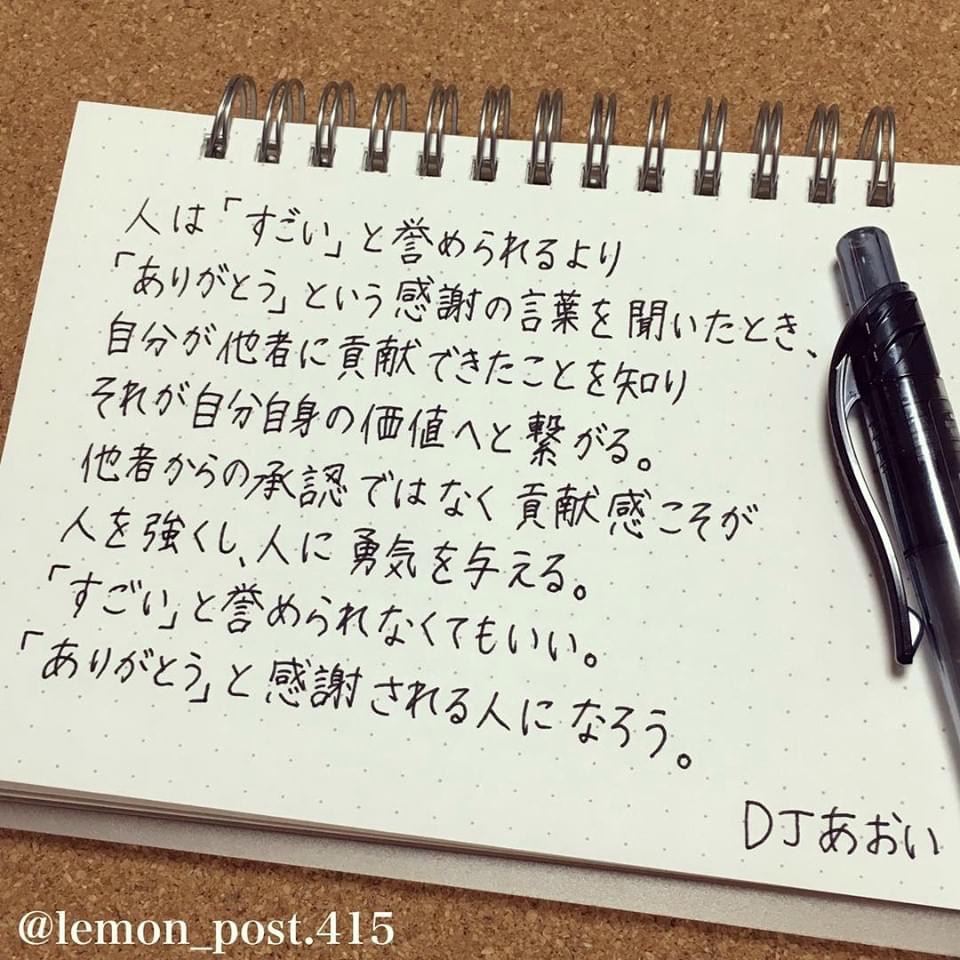 人は「すごい」と誉められるより
「ありがとう」という感謝の言葉を聞いたとき、
自分が他者に貢献できたことを知り
それが自分自身の価値へと繋がる。
他者からの承認ではなく貢献感こそが
人を強くし、人に勇気を与える。
「すごい」と誉められなくてもいい。
「ありがとう」と感謝される人になろう。
DJあおい
@lemon_post.415